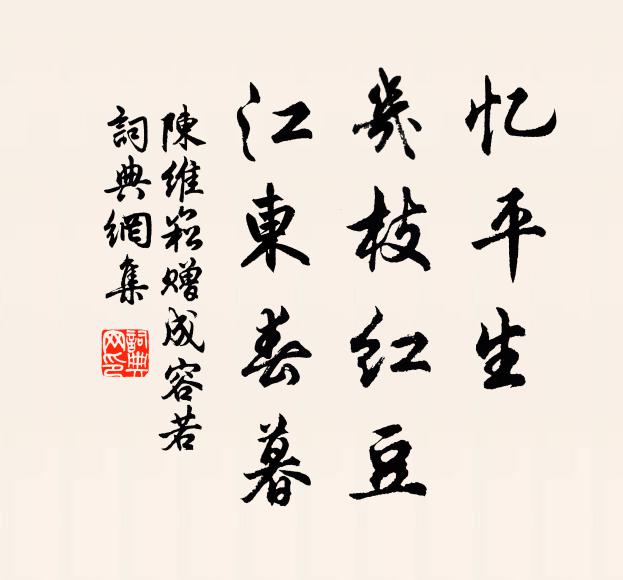 忆平生
幾枝红豆
江東春暮
陳維崧赠成容若
詞典網集
詞典网印